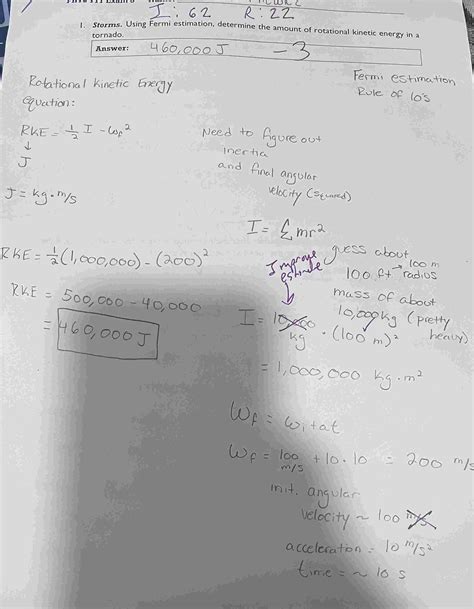 I: 62 R: 22
1. Storms. Using Fermi estimation, determine the amount of rotational kinetic energy in a
tornado.
Answer: 460,000 J -3
Rotational Kinetic Energy
equation:
RKE = 1/2 I - ωf²
↓
J
J = kg · m/s
RKE = 1/2 (1,000,000) - (200)²
RKE = 500,000 - 40,000
= 460,000 J
Fermi estimation
Rule of 10's
Need to figure out
inertia
and final angular
velocity (squared)
I = Σ mr²
guess about
100 ft → 100 m radius
mass of about
10,000 kg (pretty
heavy)
Improve
estimate
↓
I = 10,000 kg · (100 m)²
= 1,000,000 kg · m²
ωf = ωi + αt
ωf = 100 m/s + 10 · 10 = 200 m/s
init. angular
velocity ~ 100 m/s
acceleration = 10 m/s²
time = ~ 10 s